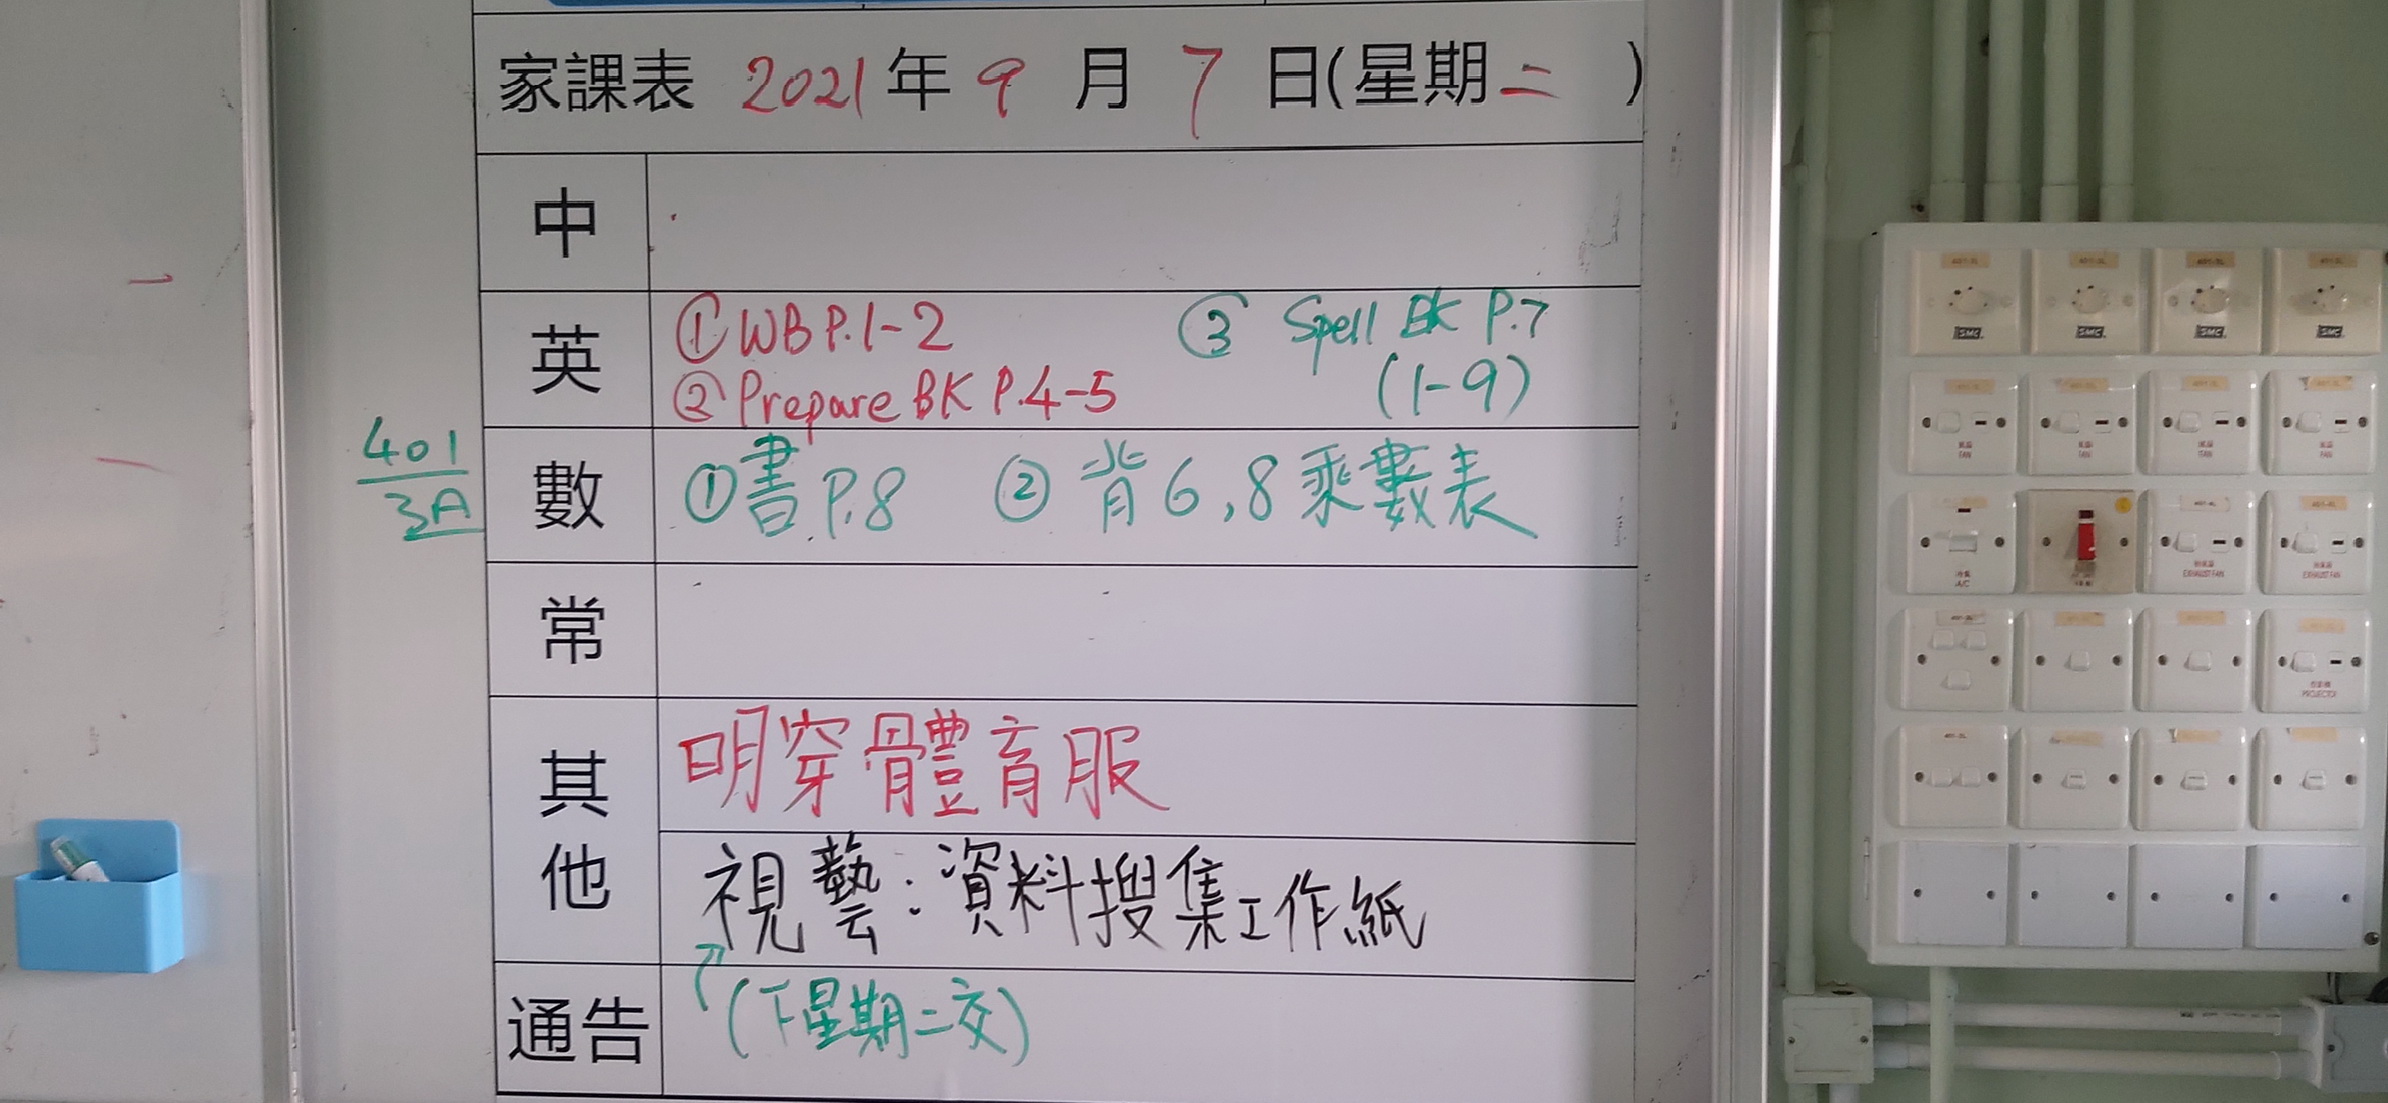 家課表 2021 年 9 月 7 日(星期二 )
中
英
① WB P.1-2
② Prepare BK P.4-5
③ Spell BK P.7
(1-9)
401
3A
數
① 書 P.8 ② 背 6,8 乘數表
常
其他
明穿體育服
視藝：資料搜集工作紙
通告
(下星期二交)
SMC SMC SMC SMC
FAN FAN FAN FAN
A/C
EXHAUST FAN EXHAUST FAN
PROJECTOR